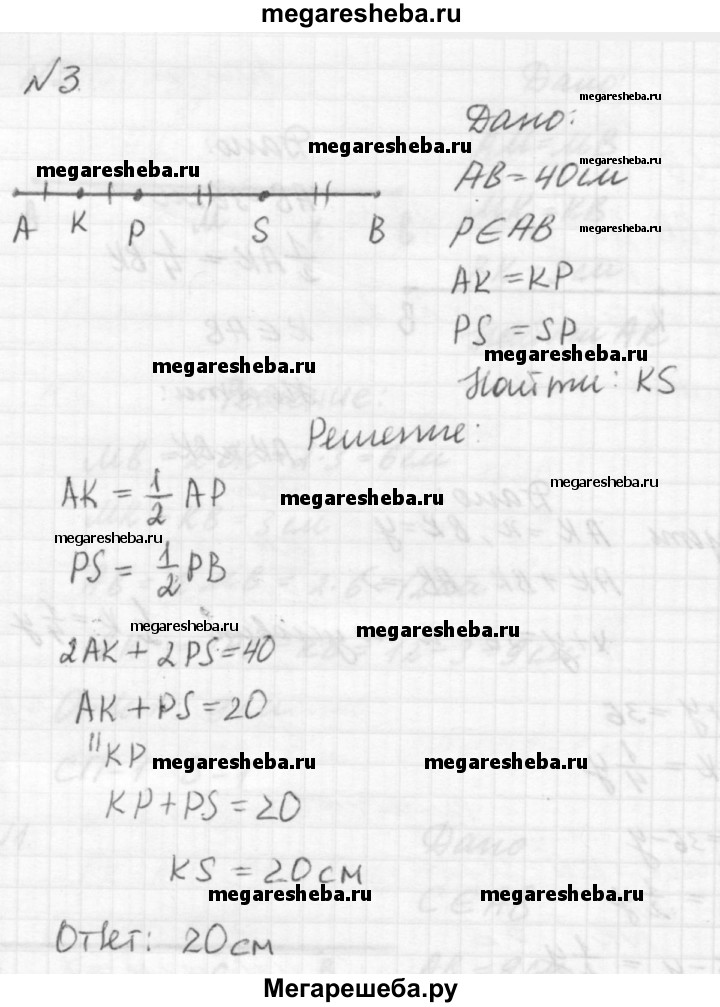 megaresheba.ru
№3.
megaresheba.ru
Дано:
megaresheba.ru
megaresheba.ru
AB = 40см
A K P S B
P∈AB
megaresheba.ru
AK = KP
PS = SP
megaresheba.ru
megaresheba.ru
Найти: KS
Решение:
AK = 1/2 AP
megaresheba.ru
megaresheba.ru
megaresheba.ru
PS = 1/2 PB
megaresheba.ru
megaresheba.ru
2AK + 2PS = 40
AK + PS = 20
"KP
megaresheba.ru
megaresheba.ru
KP + PS = 20
KS = 20см
megaresheba.ru
megaresheba.ru
Ответ: 20см
Мегарешеба.ру